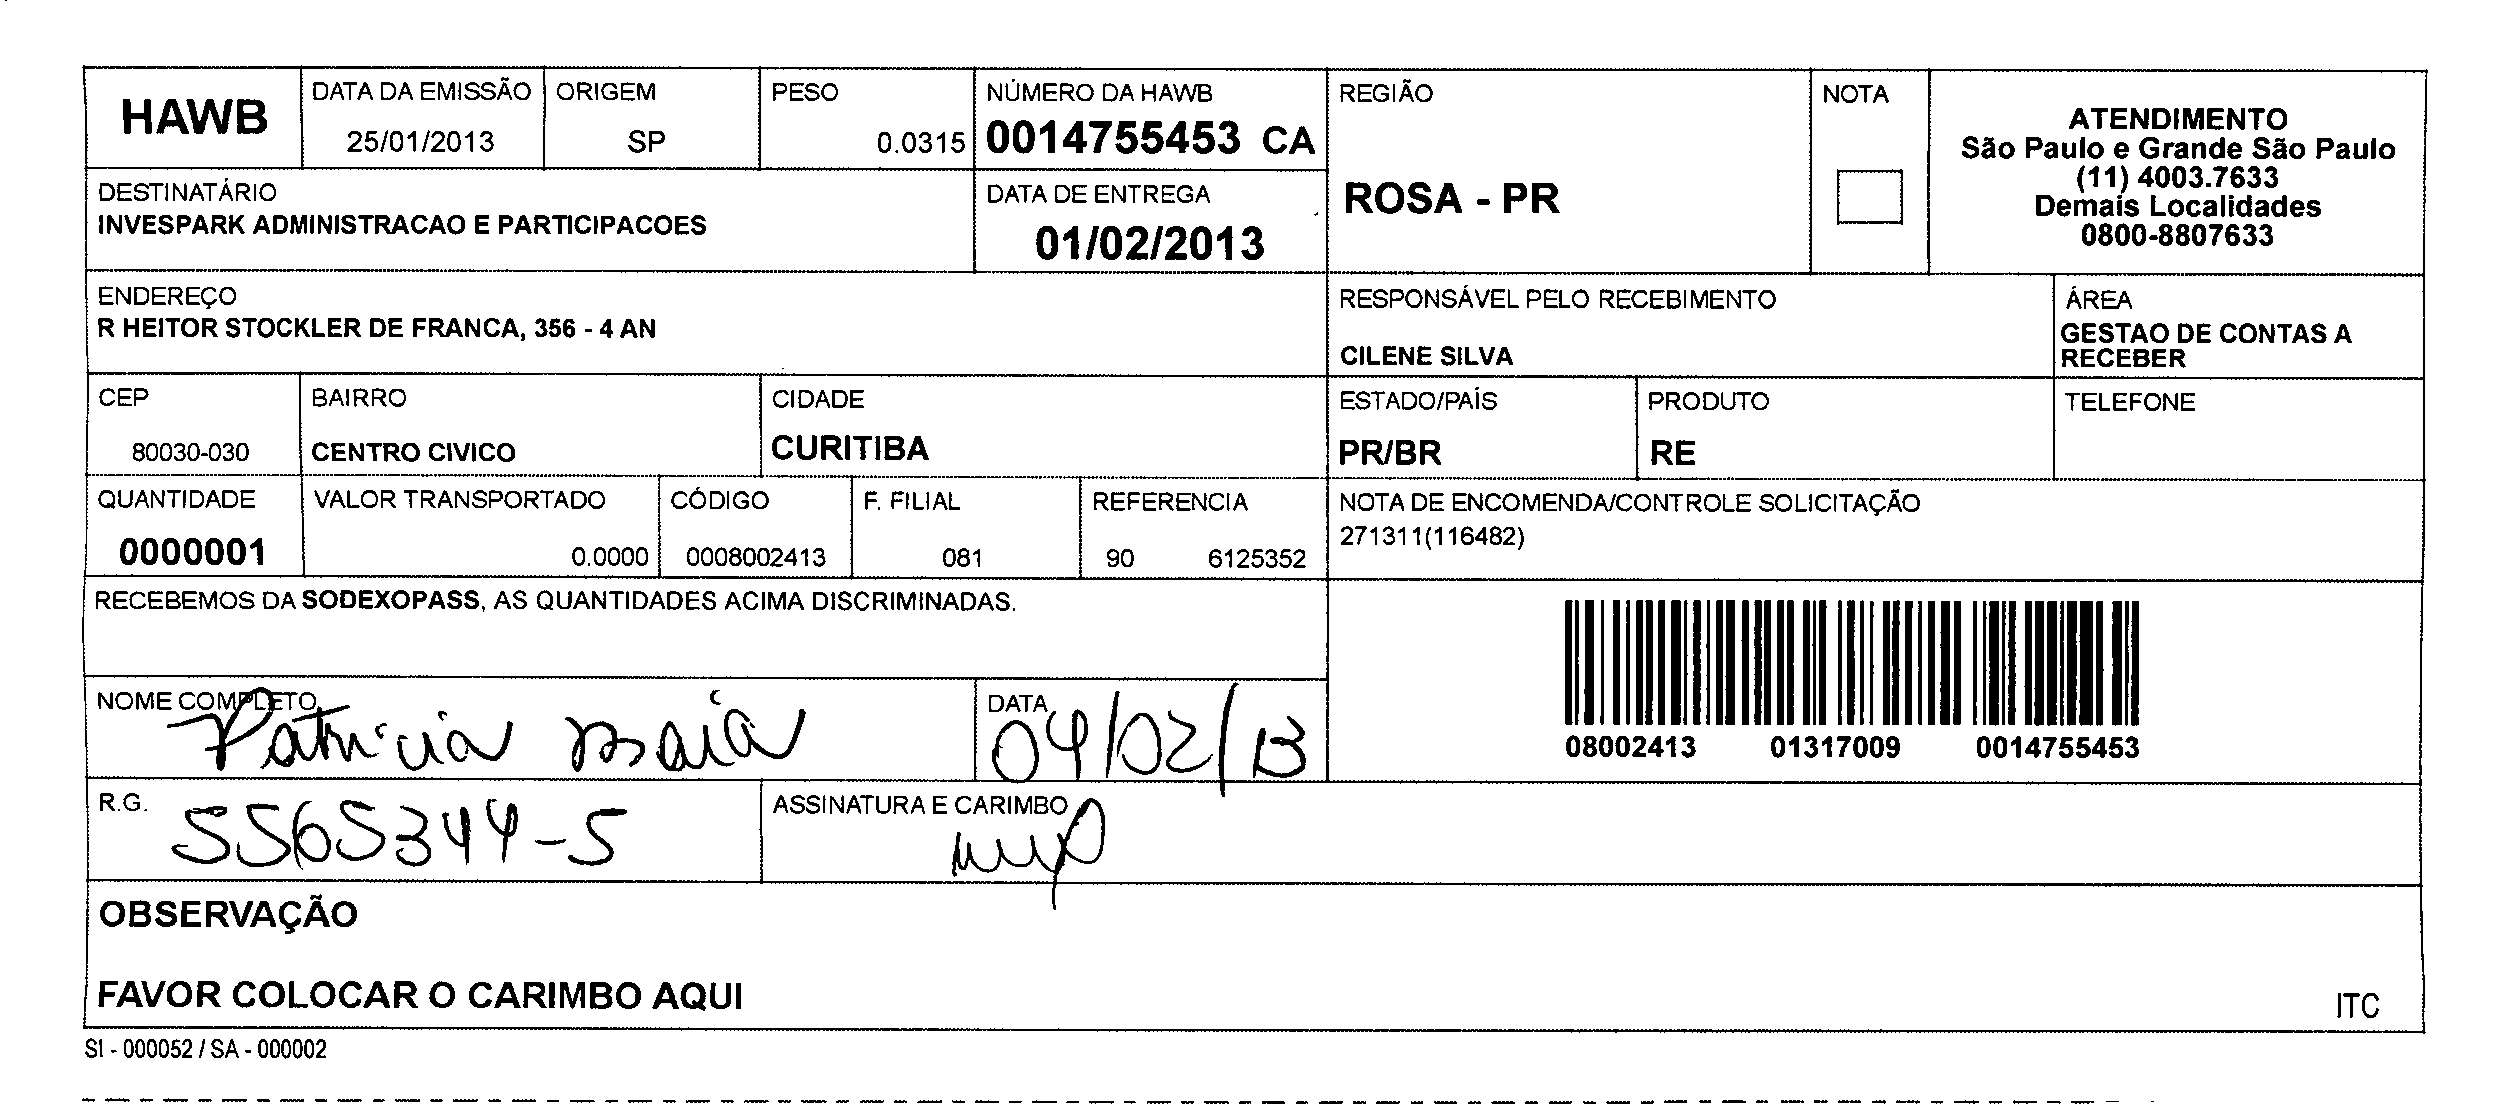 HAWB
DATA DA EMISSÃO
25/01/2013
ORIGEM
SP
PESO
0.0315
NÚMERO DA HAWB
0014755453 CA
REGIÃO
ROSA - PR
NOTA
ATENDIMENTO
São Paulo e Grande São Paulo
(11) 4003.7633
Demais Localidades
0800-8807633
DESTINATÁRIO
INVESPARK ADMINISTRACAO E PARTICIPACOES
DATA DE ENTREGA
01/02/2013
ENDEREÇO
R HEITOR STOCKLER DE FRANCA, 356 - 4 AN
RESPONSÁVEL PELO RECEBIMENTO
CILENE SILVA
ÁREA
GESTAO DE CONTAS A
RECEBER
CEP
80030-030
BAIRRO
CENTRO CIVICO
CIDADE
CURITIBA
ESTADO/PAÍS
PR/BR
PRODUTO
RE
TELEFONE
QUANTIDADE
0000001
VALOR TRANSPORTADO
0.0000
CÓDIGO
0008002413
F. FILIAL
081
REFERENCIA
90 6125352
NOTA DE ENCOMENDA/CONTROLE SOLICITAÇÃO
271311(116482)
RECEBEMOS DA SODEXOPASS, AS QUANTIDADES ACIMA DISCRIMINADAS.
08002413 01317009 0014755453
NOME COMPLETO
Patricia Maia
DATA
04/02/13
R.G.
5565344-5
ASSINATURA E CARIMBO
OBSERVAÇÃO
FAVOR COLOCAR O CARIMBO AQUI
ITC
SI - 000052 / SA - 000002